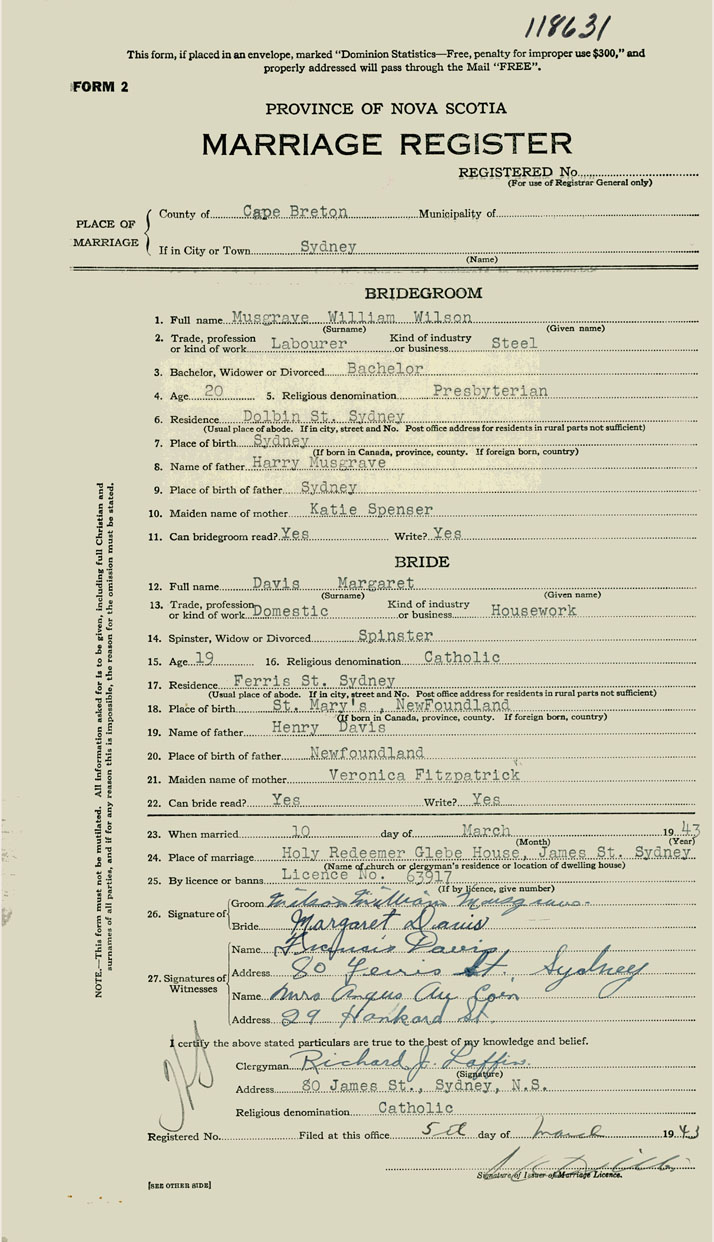 118631
This form, if placed in an envelope, marked "Dominion Statistics—Free, penalty for improper use $300," and
properly addressed will pass through the Mail "FREE".
FORM 2
PROVINCE OF NOVA SCOTIA
MARRIAGE REGISTER
REGISTERED No.
(For use of Registrar General only)
PLACE OF MARRIAGE
County of Cape Breton Municipality of
If in City or Town Sydney
(Name)
BRIDEGROOM
1. Full name Musgrave William Wilson
(Surname) (Given name)
2. Trade, profession or kind of work Labourer Kind of industry or business Steel
3. Bachelor, Widower or Divorced Bachelor
4. Age 20 5. Religious denomination Presbyterian
6. Residence Dolbin St. Sydney
(Usual place of abode. If in city, street and No. Post office address for residents in rural parts not sufficient)
7. Place of birth Sydney
(If born in Canada, province, county. If foreign born, country)
8. Name of father Harry Musgrave
9. Place of birth of father Sydney
10. Maiden name of mother Katie Spenser
11. Can bridegroom read? Yes Write? Yes
BRIDE
12. Full name Davis Margaret
(Surname) (Given name)
13. Trade, profession or kind of work Domestic Kind of industry or business Housework
14. Spinster, Widow or Divorced Spinster
15. Age 19 16. Religious denomination Catholic
17. Residence Ferris St. Sydney
(Usual place of abode. If in city, street and No. Post office address for residents in rural parts not sufficient)
18. Place of birth St. Mary's , NewFoundland
(If born in Canada, province, county. If foreign born, country)
19. Name of father Henry Davis
20. Place of birth of father Newfoundland
21. Maiden name of mother Veronica Fitzpatrick
22. Can bride read? Yes Write? Yes
23. When married 10 day of March 1943
(Month) (Year)
24. Place of marriage Holy Redeemer Glebe House, James St. Sydney
(Name of church or clergyman's residence or location of dwelling house)
25. By licence or banns Licence No. 63917
(If by licence, give number)
26. Signature of
Groom Wilson William Musgrave
Bride Margaret Davis
27. Signatures of Witnesses
Name Francis Davis
Address 80 Ferris St. Sydney
Name Mrs Angus Au Coin
Address 29 Hankard St.
I certify the above stated particulars are true to the best of my knowledge and belief.
Clergyman Richard J. Laffin.
(Signature)
Address 80 James St., Sydney, N.S.
Religious denomination Catholic
Registered No. Filed at this office 5th day of March 1943
Signature of Issuer of Marriage Licence.
[SEE OTHER SIDE]
NOTE.—This form must not be mutilated. All Information asked for is to be given, including full Christian and
surnames of all parties, and if for any reason this is impossible, the reason for the omission must be stated.